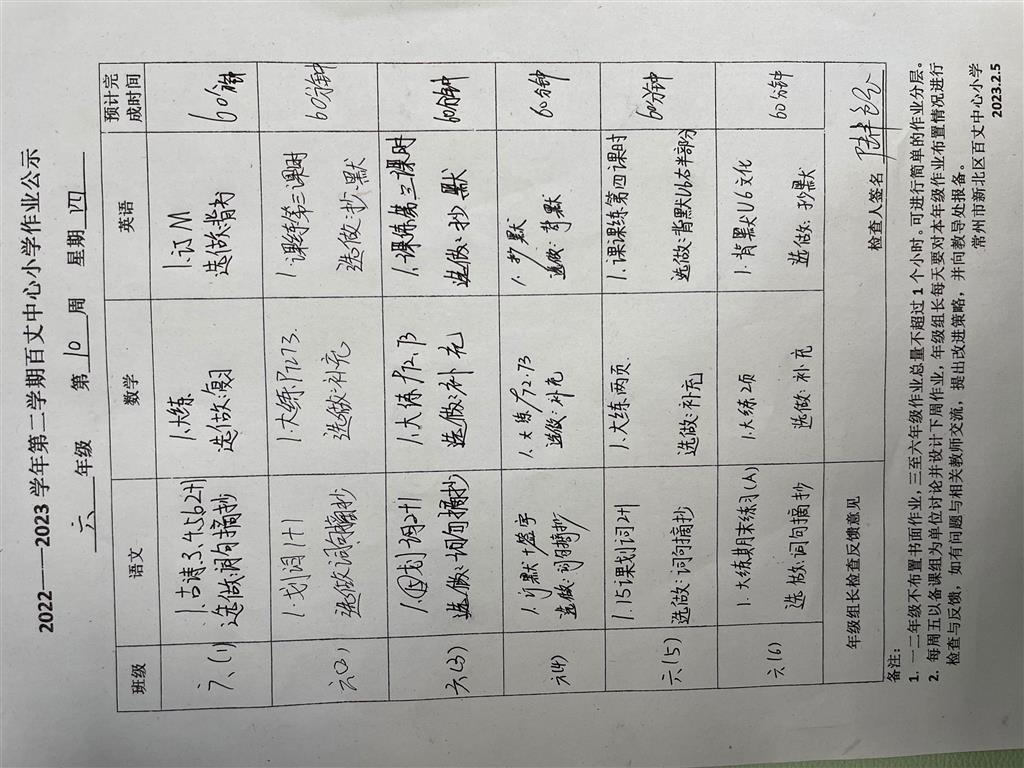 2022——2023 学年第二学期百丈中心小学作业公示
六年级 第10周 星期四
班级 语文 数学 英语 预计完成时间
六(1) 1.古诗3.4.5.6 2+1 1.大练 1.订M 60分钟
选做:词句摘抄 选做:复习 选做:背书
六(2) 1.划词1+1 1.大练P72.73 1.课练第三课时 60分钟
选做:词句摘抄 选做:补充 选做:抄.默
六(3) 1.划词2+1 1.大练P72.73 1.课练第三课时 60分钟
选做:词句摘抄 选做:补充 选做:抄默
六(4) 1.大练P72.73 1.抄默 60分钟
选做:词句摘抄 选做:补充 选做:
六(5) 1.15课划词2+1 1.大练两页 1.课课练第四课时 60分钟
选做:词句摘抄 选做:补充 选做:背默U6右半部分
六(6) 1.大练期末练习(A) 1.大练2项 1.背默U6文化 60分钟
选做:词句摘抄 选做:补充 选做:抄默
年级组长检查反馈意见 检查人签名
备注:
1. 一二年级不布置书面作业,三至六年级作业总量不超过 1 个小时。可进行简单的作业分层。
2. 每周五以备课组为单位讨论并设计下周作业,年级组长每天要对本年级作业布置情况进行
检查与反馈,如有问题与相关教师交流,提出改进策略,并向教导处报备。
常州市新北区百丈中心小学
2023.2.5